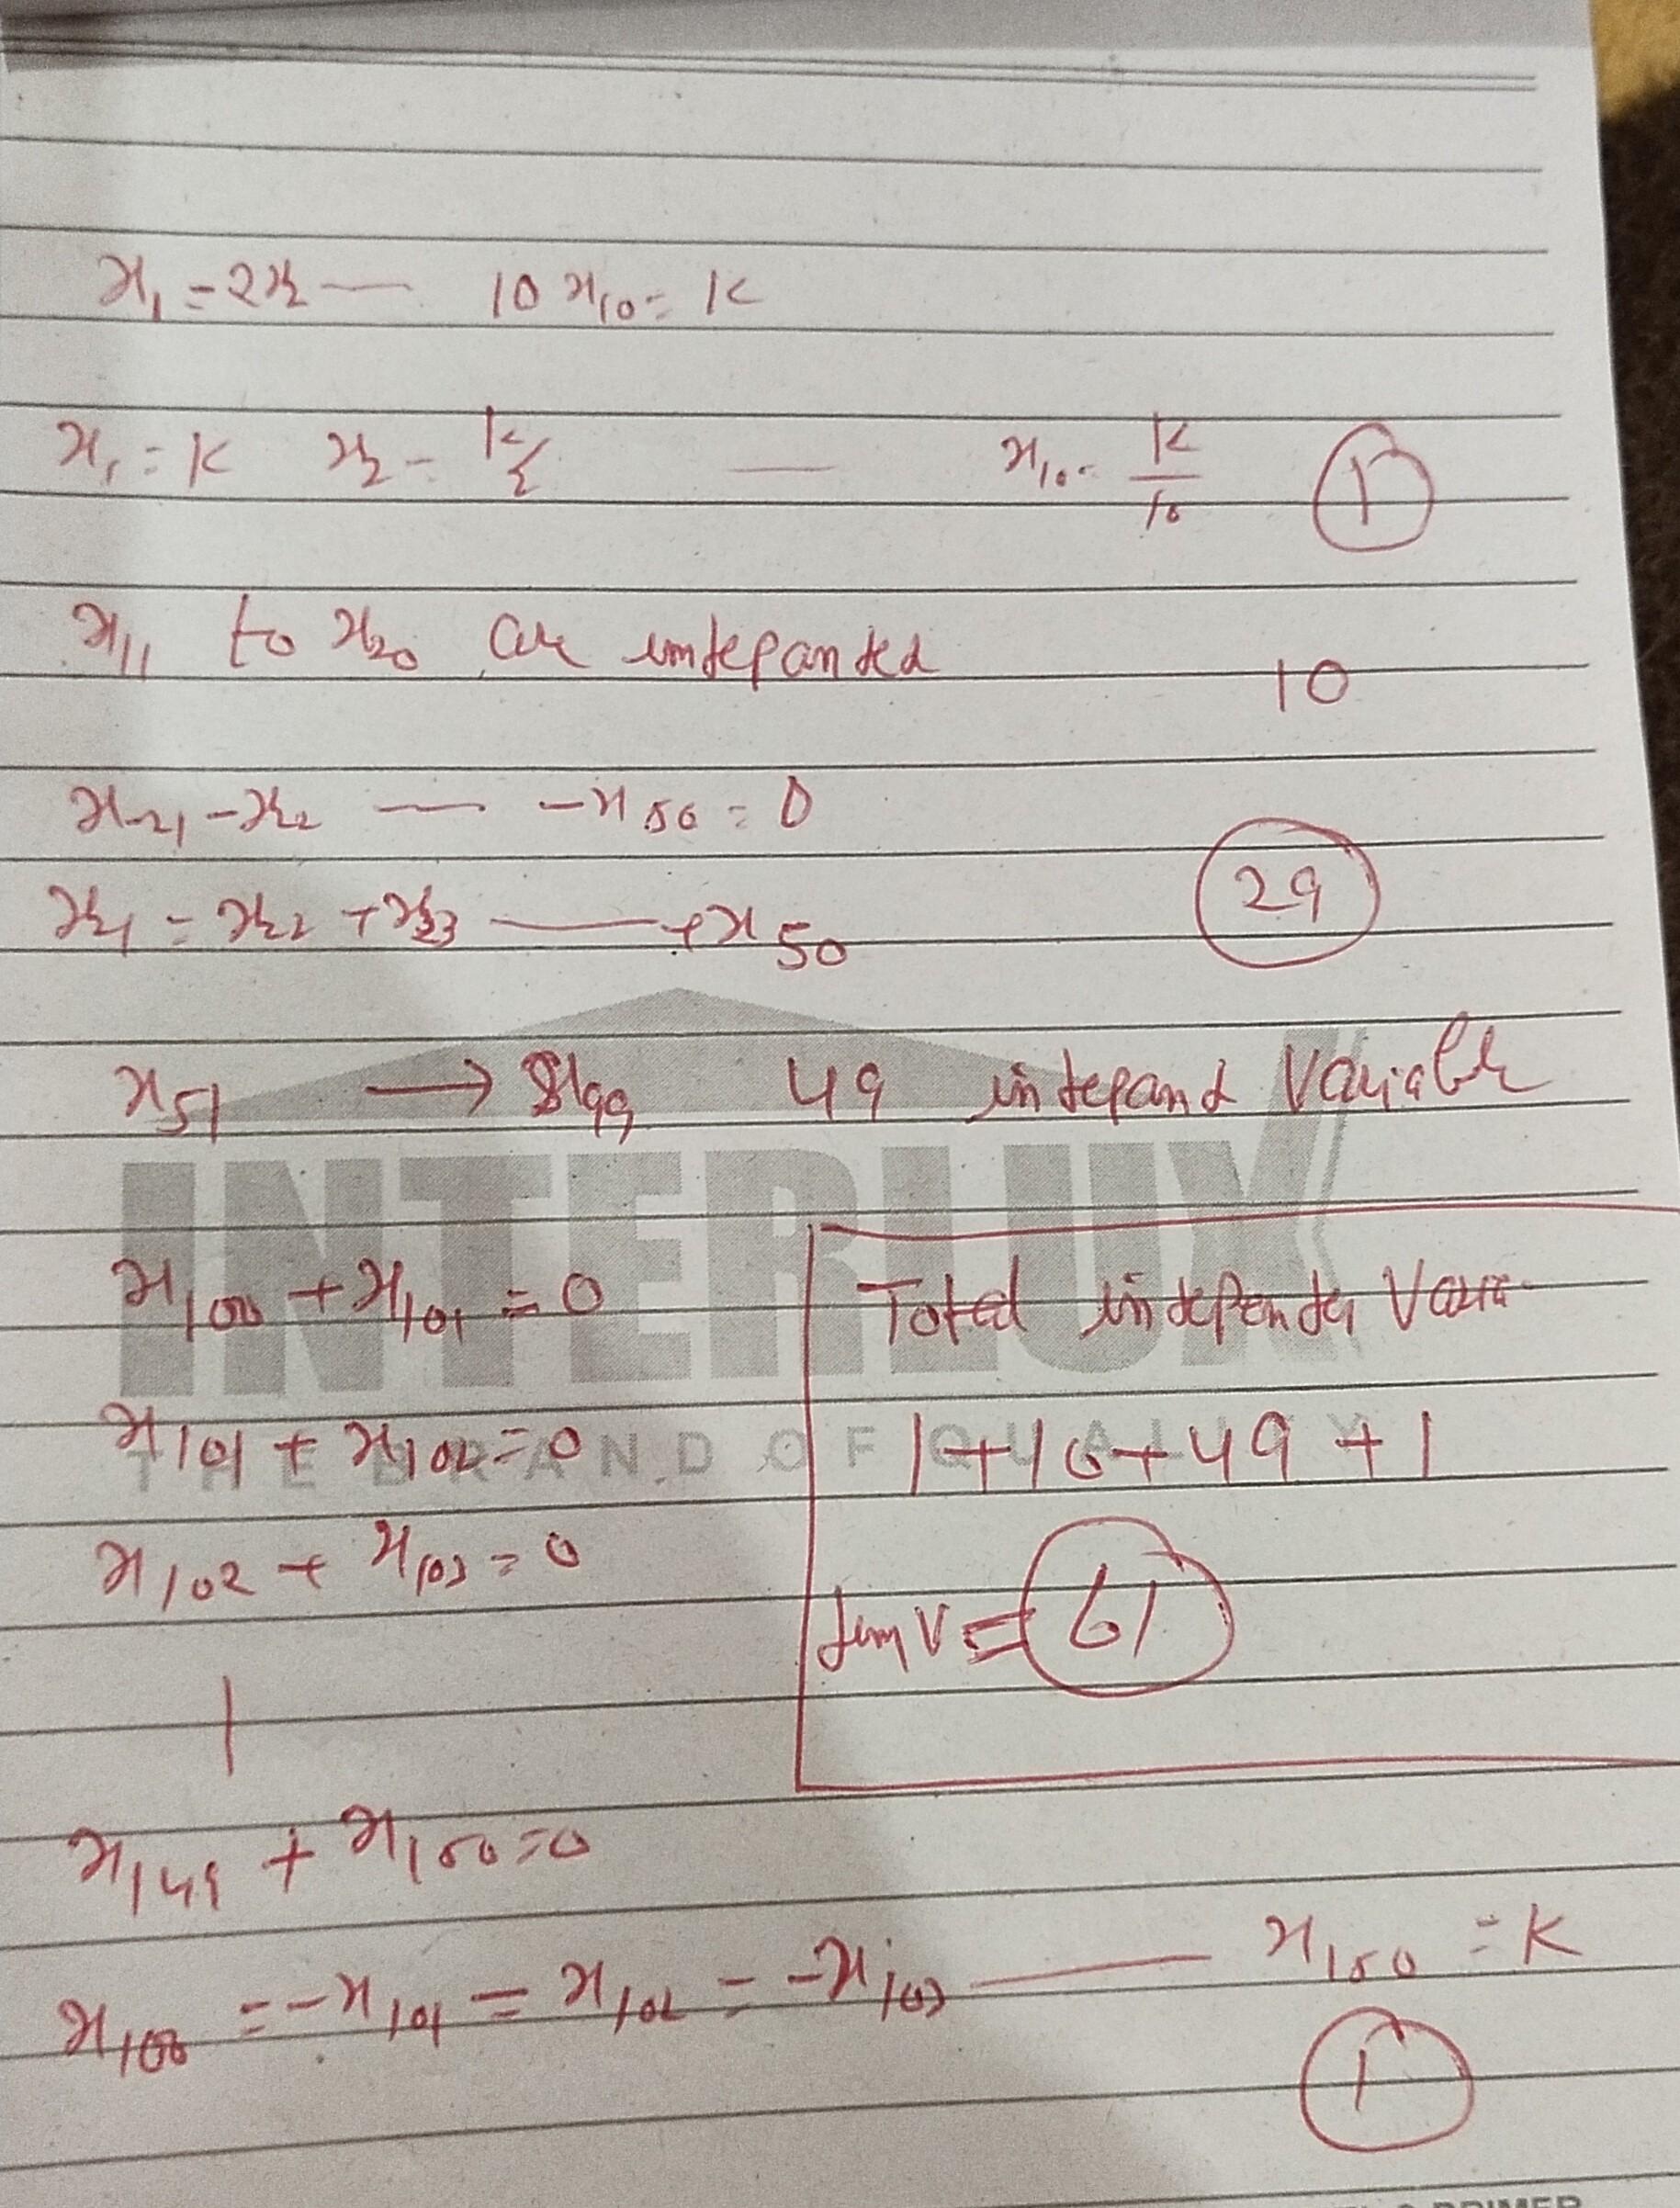 x₁ = 2x₂ — 10 x₁₀ = K
x₁ = K x₂ = K/2 — x₁₀ = K/10 1
x₁₁ to x₂₀ are intepanted 10
x₂₁ - x₂₂ — - x₅₀ = 0
29
x₂₁ = x₂₂ + x₂₃ — + x₅₀
x₅₁ → x₉₉ 49 intepand Variable
INTERLUX
THE BRAND OF QUALITY
x₁₀₀ + x₁₀₁ = 0
x₁₀₁ + x₁₀₂ = 0
x₁₀₂ + x₁₀₃ = 0
|
x₁₄₉ + x₁₅₀ = 0
Total independen Vara
1 + 10 + 49 + 1
dim V = 61
x₁₀₀ = - x₁₀₁ = x₁₀₂ = - x₁₀₃ — x₁₅₀ = K
1
PRIMER